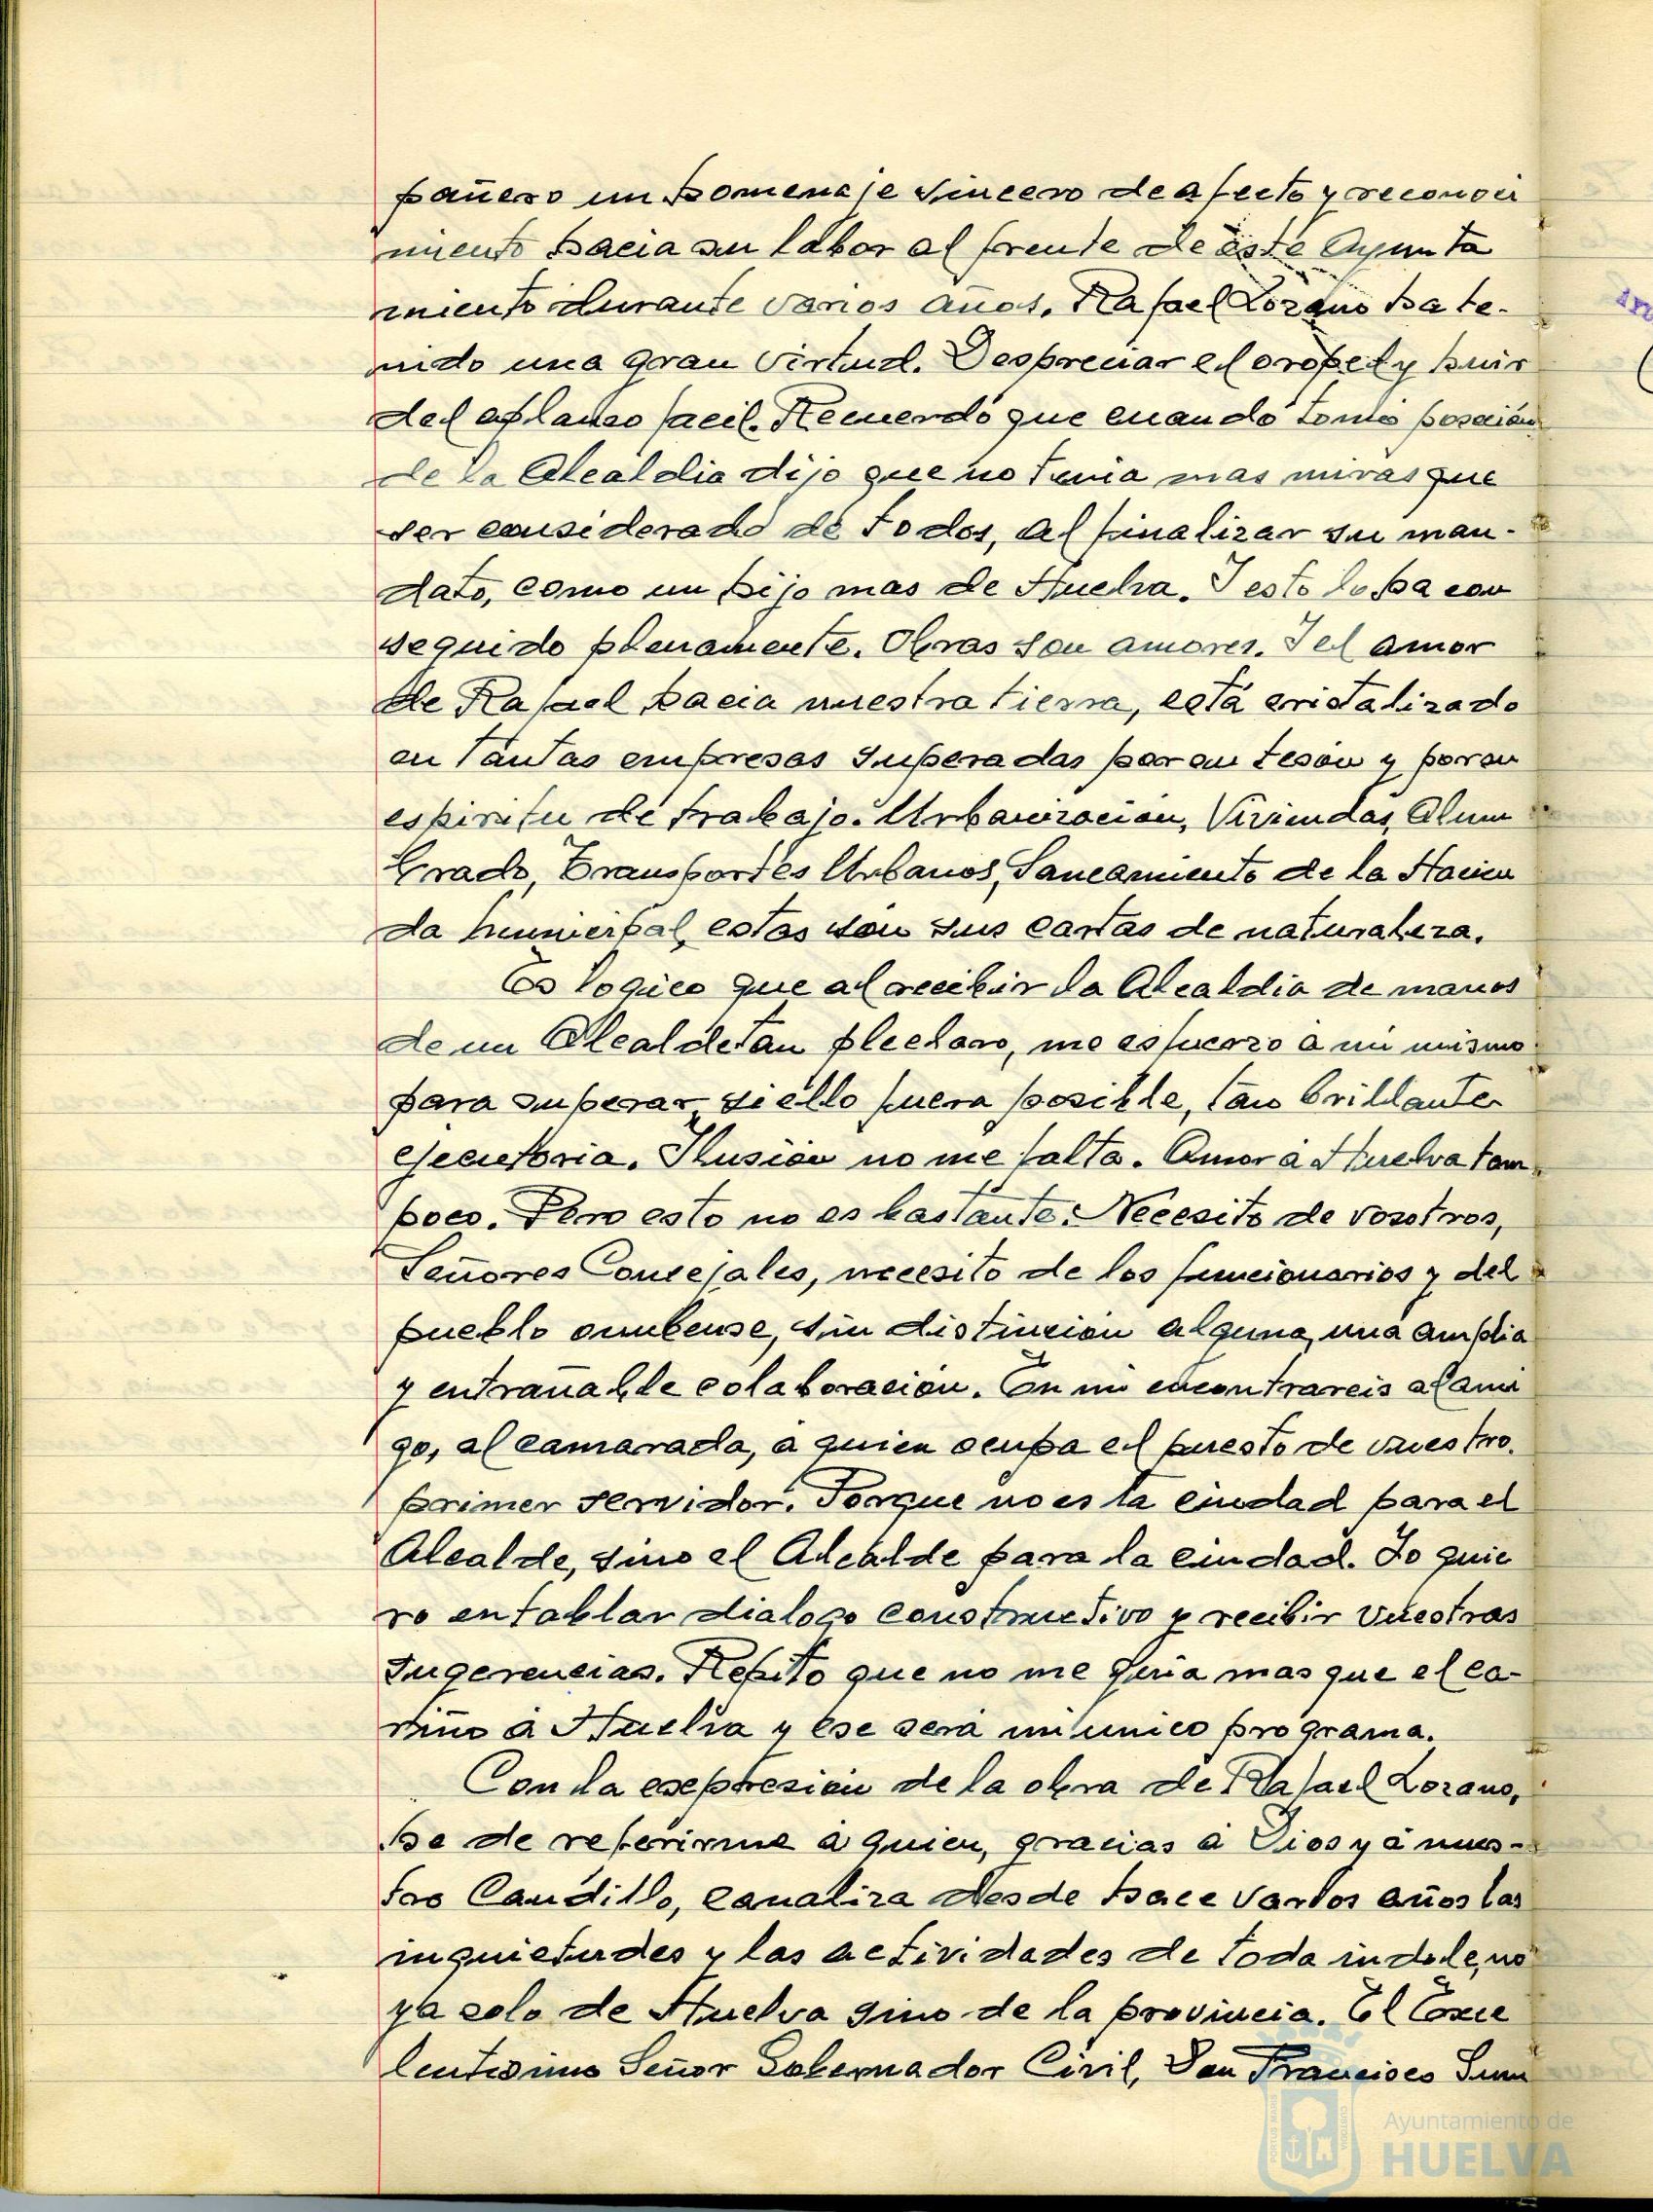 pañero un homenaje sincero de afecto y reconoci
miento hacia su labor al frente de éste Ayunta
miento durante varios años. Rafael Lozano ha te-
nido una gran virtud. Despreciar el oropel y huir
del aplauso facil. Recuerdo que cuando tomó posesión
de la Alcaldia dijo que no tenia mas miras que
ser considerado de todos, al finalizar su man-
dato, como un hijo mas de Huelva. I esto lo ha con
seguido plenamente. Obras son amores. I el amor
de Rafael hacia nuestra tierra, está cristalizado
en tantas empresas superadas por su tesón y por su
espiritu de trabajo. Urbanización, Viviendas, Alum
brado, Transportes Urbanos, Saneamiento de la Hacien
da Municipal, estas son sus cartas de naturaleza.
Es logico que al recibir la Alcaldia de manos
de un Alcalde tan preclaro, me esfuerzo a mi mismo
para superar, si ello fuera posible, tan brillante
ejecutoria. Ilusión no me falta. Amor á Huelva tam
poco. Pero esto no es bastante. Necesito de vosotros,
Señores Concejales, necesito de los funcionarios y del
pueblo onubense, sin distinción alguna, una amplia
y entrañable colaboración. En mi encontrareis al ami
go, al camarada, a quien ocupa el puesto de vuestro
primer servidor. Porque no es la ciudad para el
Alcalde, sino el Alcalde para la ciudad. Io quie
ro entablar dialogo constructivo y recibir vuestras
sugerencias. Repito que no me guia mas que el ca-
riño á Huelva y ese será mi unico programa.
Con la esepresión de la obra de Rafael Lozano,
he de referirme á quien, gracias á Dios y á nues-
tro Caudillo, canaliza desde hace varios años las
inquietudes y las actividades de toda indole, no
ya solo de Huelva sino de la provincia. El Exce
lentisimo Señor Gobernador Civil, Don Francisco Sum
Ayuntamiento de
HUELVA